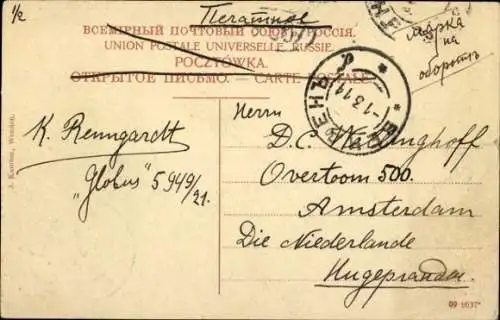 1/2
Печатное
ВСЕМІРНЫЙ ПОЧТОВЫЙ СОЮЗЪ. РОССІЯ.
UNION POSTALE UNIVERSELLE. RUSSIE.
POCZTÓWKA.
ОТКРЫТОЕ ПИСЬМО. — CARTE POSTALE
марка
на
оборотѣ
-1.3.11
K. Renngardt
"Globus" 5949/21.
Herrn
D. C.
Overtoom 500.
Amsterdam
Die Niederlande
Нидерланды.
Wenden.